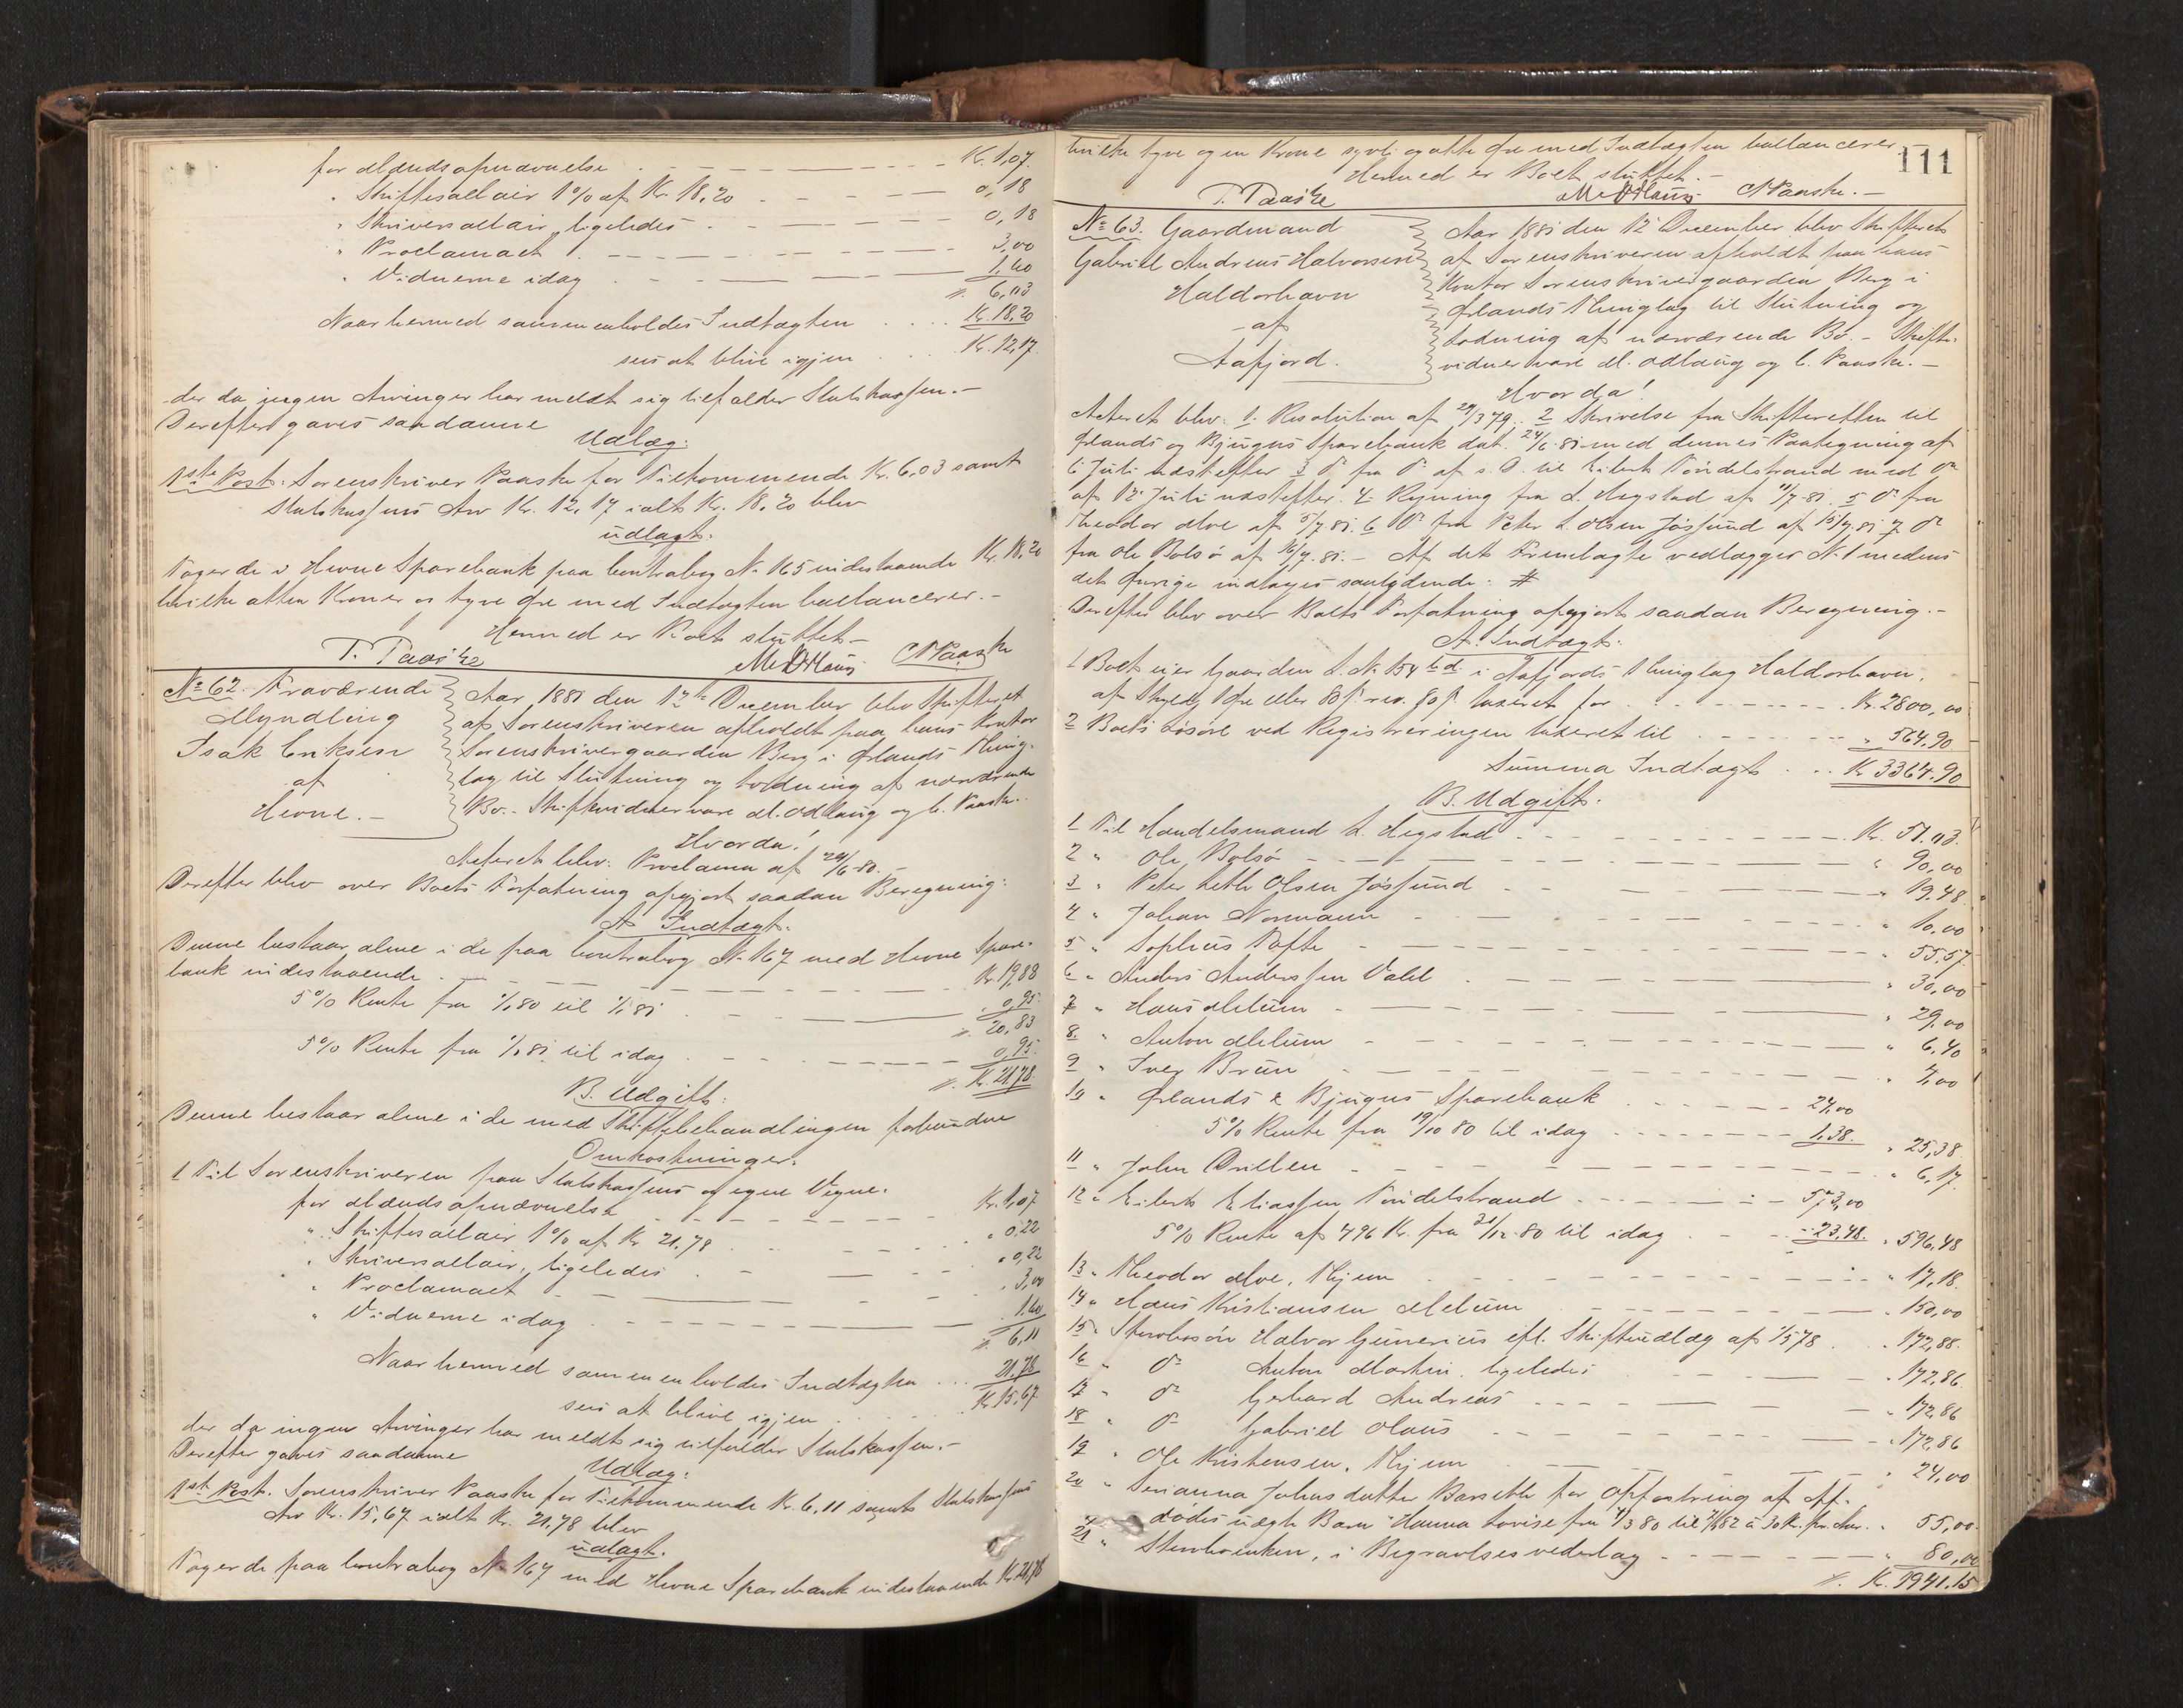 for Mændsopnævnelse . . . Kr. 1,07.
" Skiftesallair 1% af Kr. 18,20 . . . 0,18
" Skriversallair, ligeledes . . . 0,18
" Proclamaet . . . 3,00
" Vidnerne idag . . . 1,60
". 6,03
Naar hermed sammenholdes Indtægten . . . Kr. 18,20
sees at blive igjen . . . Kr. 12,17.
der da ingen Arvinger har meldt sig tilfalder Statskassen.-
Derefter gaves saadanne
Udlæg:
1ste Post: Sorenskriver Paaske for Tilkommende Kr. 6,03 samt
Statskassens Arv Kr. 12,17 ialt Kr. 18,20 blev
udlagt.
Tager de i Hevne Sparebank paa Contrabog No 165 indestaaende Kr. 18,20
hvilke atten Kroner og tyve Øre med Indtægten ballancerer.-
Hermed er Boet sluttet.-
T. Paaske M. Odlaug C Paaske
No 62. Fraværende
Myndling
Isak Eriksen
af
Hevne.-
Aar 1881 den 12te December blev Skifteret
af Sorenskriveren afholdt paa hans Kontor
Sorenskrivergaarden Berg i Ørlands Thing-
lag til Slutning og Lodning af nærværende
Bo.- Skiftevidner vare M. Odlaug og C. Paaske.-
Hvorda!
Acteret blev: Proclama af 24/6 80.-
Derefter blev over Boets Forfatning opgjort saadan Beregning:
A. Indtægt.
Denne bestaar alene i de paa Contrabog No 167 med Hevne Spare-
bank indestaaende . . . Kr. 19,88
5% Rente fra 1/1 80 til 1/1 81 . . . 0,95.
". 20,83
5% Rente fra 1/1 81 til idag . . . 0,95.
". Kr. 21,78
B. Udgift.
Denne bestaar alene i de med Skiftebehandlingen forbundne
Omkostninger.
1 Til Sorenskriveren paa Statskassens og egne Vegne.
for Mændsopnævnelse . . . Kr. 1,07
" Skiftesallair 1% af Kr 21,78 . . . " 0,22
" Skriversallair, ligeledes . . . " 0,22
" Proclamaet . . . " 3,00
" Vidnerne idag . . . 1,60
". 6,11
Naar hermed sammenholdes Indtægten . . . 21,78
sees at blive igjen . . . Kr. 15,67
der da ingen Arvinger har meldt sig tilfalder Statskassen.-
Derefter gaves saadanne
Udlæg:
1ste Post. Sorenskriver Paaske for Tilkommende Kr. 6,11 samt Statskassens
Arv Kr. 15,67 ialt Kr. 21,78 blev
udlagt.
Tager de paa Contrabog No 167 med Hevne Sparebank indestaaende Kr. 21,78
hvilke tyve og en Krone syvti og otte Øre med Indtægten ballancerer
111
Hermed er Boet sluttet.-
T. Paaske M. Odlaug C Paaske.-
No 63. Gaardmand
Gabriel Andreas Halvorsen
Haldorhavn
af
Aafjord.
Aar 1881 den 12 December blev Skifteret
af Sorenskriveren afholdt paa hans
Kontor Sorenskrivergaarden Berg i
Ørlands Thinglag til Slutning og
Lodning af nærværende Bo.- Skifte-
vidner vare M. Odlaug og C. Paaske.-
Hvorda!
Acteret blev: 1. Resolution af 29/3 79. 2 Skrivelse fra Skifteretten til
Ørlands og Bjugns Sparebank dat. 24/6 81 med dennes Paategning af
6 Juli næstefter 3 Do fra Do af s. D. til Eilert Tøndelstrand med Do
af 12 Juli næstefter. 4. Regning fra L. Hegstad af 11/7 81. 5 Do fra
Theodor Moe af 5/7 81. 6 Do fra Peter L. Olsen Jøssund af 15/7 81 7 Do
fra Ole Bolsø af 16/7 81.- Af det Fremlagte vedlægges No 1 medens
det Øvrige indtages saalydende: #
Derefter blev over Boets Forfatning opgjort saadan Beregning.-
A. Indtægt.
1 Boet eier Gaarden L. No 154 b d i Aafjords Thinglag Haldorhavn,
af Skyld 1 Øre eller 80 β rev. 80 β taxeret for . . . Kr. 2800,00
2 Boets Løsøre ved Registreringen taxeret til . . . " 564,90
Summa Indtægt . . . Kr 3364,90
B. Udgift.
1 Til Handelsmand L. Hegstad . . . Kr. 51,03.
2 " Ole Bolsø . . . " 90,00
3 " Peter Leth Olsen Jøssund . . . " 19,48.
4 " Johan Normann . . . " 10,00
5 " Sophus Tofte . . . " 55,57.
6 " Anders Anderssen Vald . . . " 30,00
7 " Hans Melum . . . " 29,00
8 " Anton Melum . . . " 6,40
9 " Iver Brun . . . " 7,00
10 " Ørlands & Bjugns Sparebank . . . 24,00
5% Rente fra 19/10 80 til idag . . . 1,38. " 25,38.
11 " John Drillen . . . " 6,17.
12 " Eilert Eliassen Tøndelstrand . . . 573,00
5% Rente af 496 Kr. fra 31/12 80 til idag . . . 23,48. " 596,48
13 " Theodor Moe, Mjem . . . " 17,18.
14 " Hans Kristiansen Melum . . . " 150,00
15 " Stervbosøn Halvor Gunerius efl. Skifteudlæg af 1/5 78 . . . " 172,88.
16 " Do Anton Martin, ligeledes . . . " 172,86.
17 " Do Gerhard Andreas . . . " 172,86
18 " Do Gabriel Olaus . . . " 172,86
19 " Ole Kristensen, Mjem . . . " 24,00
20 " Serianna Johnsdatter Barseth for Opfostring af Af-
dødes uægte Barn Hanna Lovise fra 1/3 80 til 1/1 82 à 30 Kr. pr. Aar. " 55,00.
21 " Stervboenken, i Begravelsesvederlag . . . " 80,00
". Kr. 1941,15